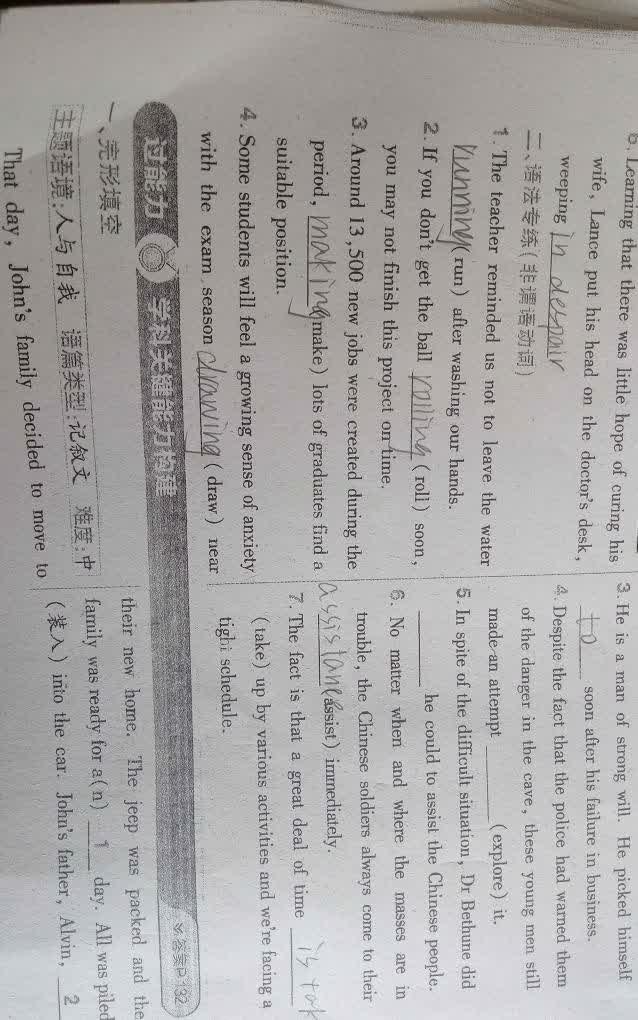 6. Learning that there was little hope of curing his
wife, Lance put his head on the doctor's desk,
weeping in despair
二、语法专练(非谓语动词)
1. The teacher reminded us not to leave the water
running(run) after washing our hands.
2. If you don't get the ball rolling(roll) soon,
you may not finish this project on time.
3. Around 13,500 new jobs were created during the
period, making(make) lots of graduates find a
suitable position.
4. Some students will feel a growing sense of anxiety
with the exam season drawing(draw) near
3. He is a man of strong will. He picked himself
to soon after his failure in business.
4. Despite the fact that the police had warned them
of the danger in the cave, these young men still
made an attempt ______(explore) it.
5. In spite of the difficult situation, Dr Bethune did
______ he could to assist the Chinese people.
6. No matter when and where the masses are in
trouble, the Chinese soldiers always come to their
assistance(assist) immediately.
7. The fact is that a great deal of time is tak
(take) up by various activities and we're facing a
tight schedule.
过能力 学科关键能力构建 答案P132
一、完形填空
主题语境:人与自我 语篇类型:记叙文 难度:中
That day, John's family decided to move to
their new home. The jeep was packed and the
family was ready for a(n) 1 day. All was piled
(装入) into the car. John's father, Alvin, 2